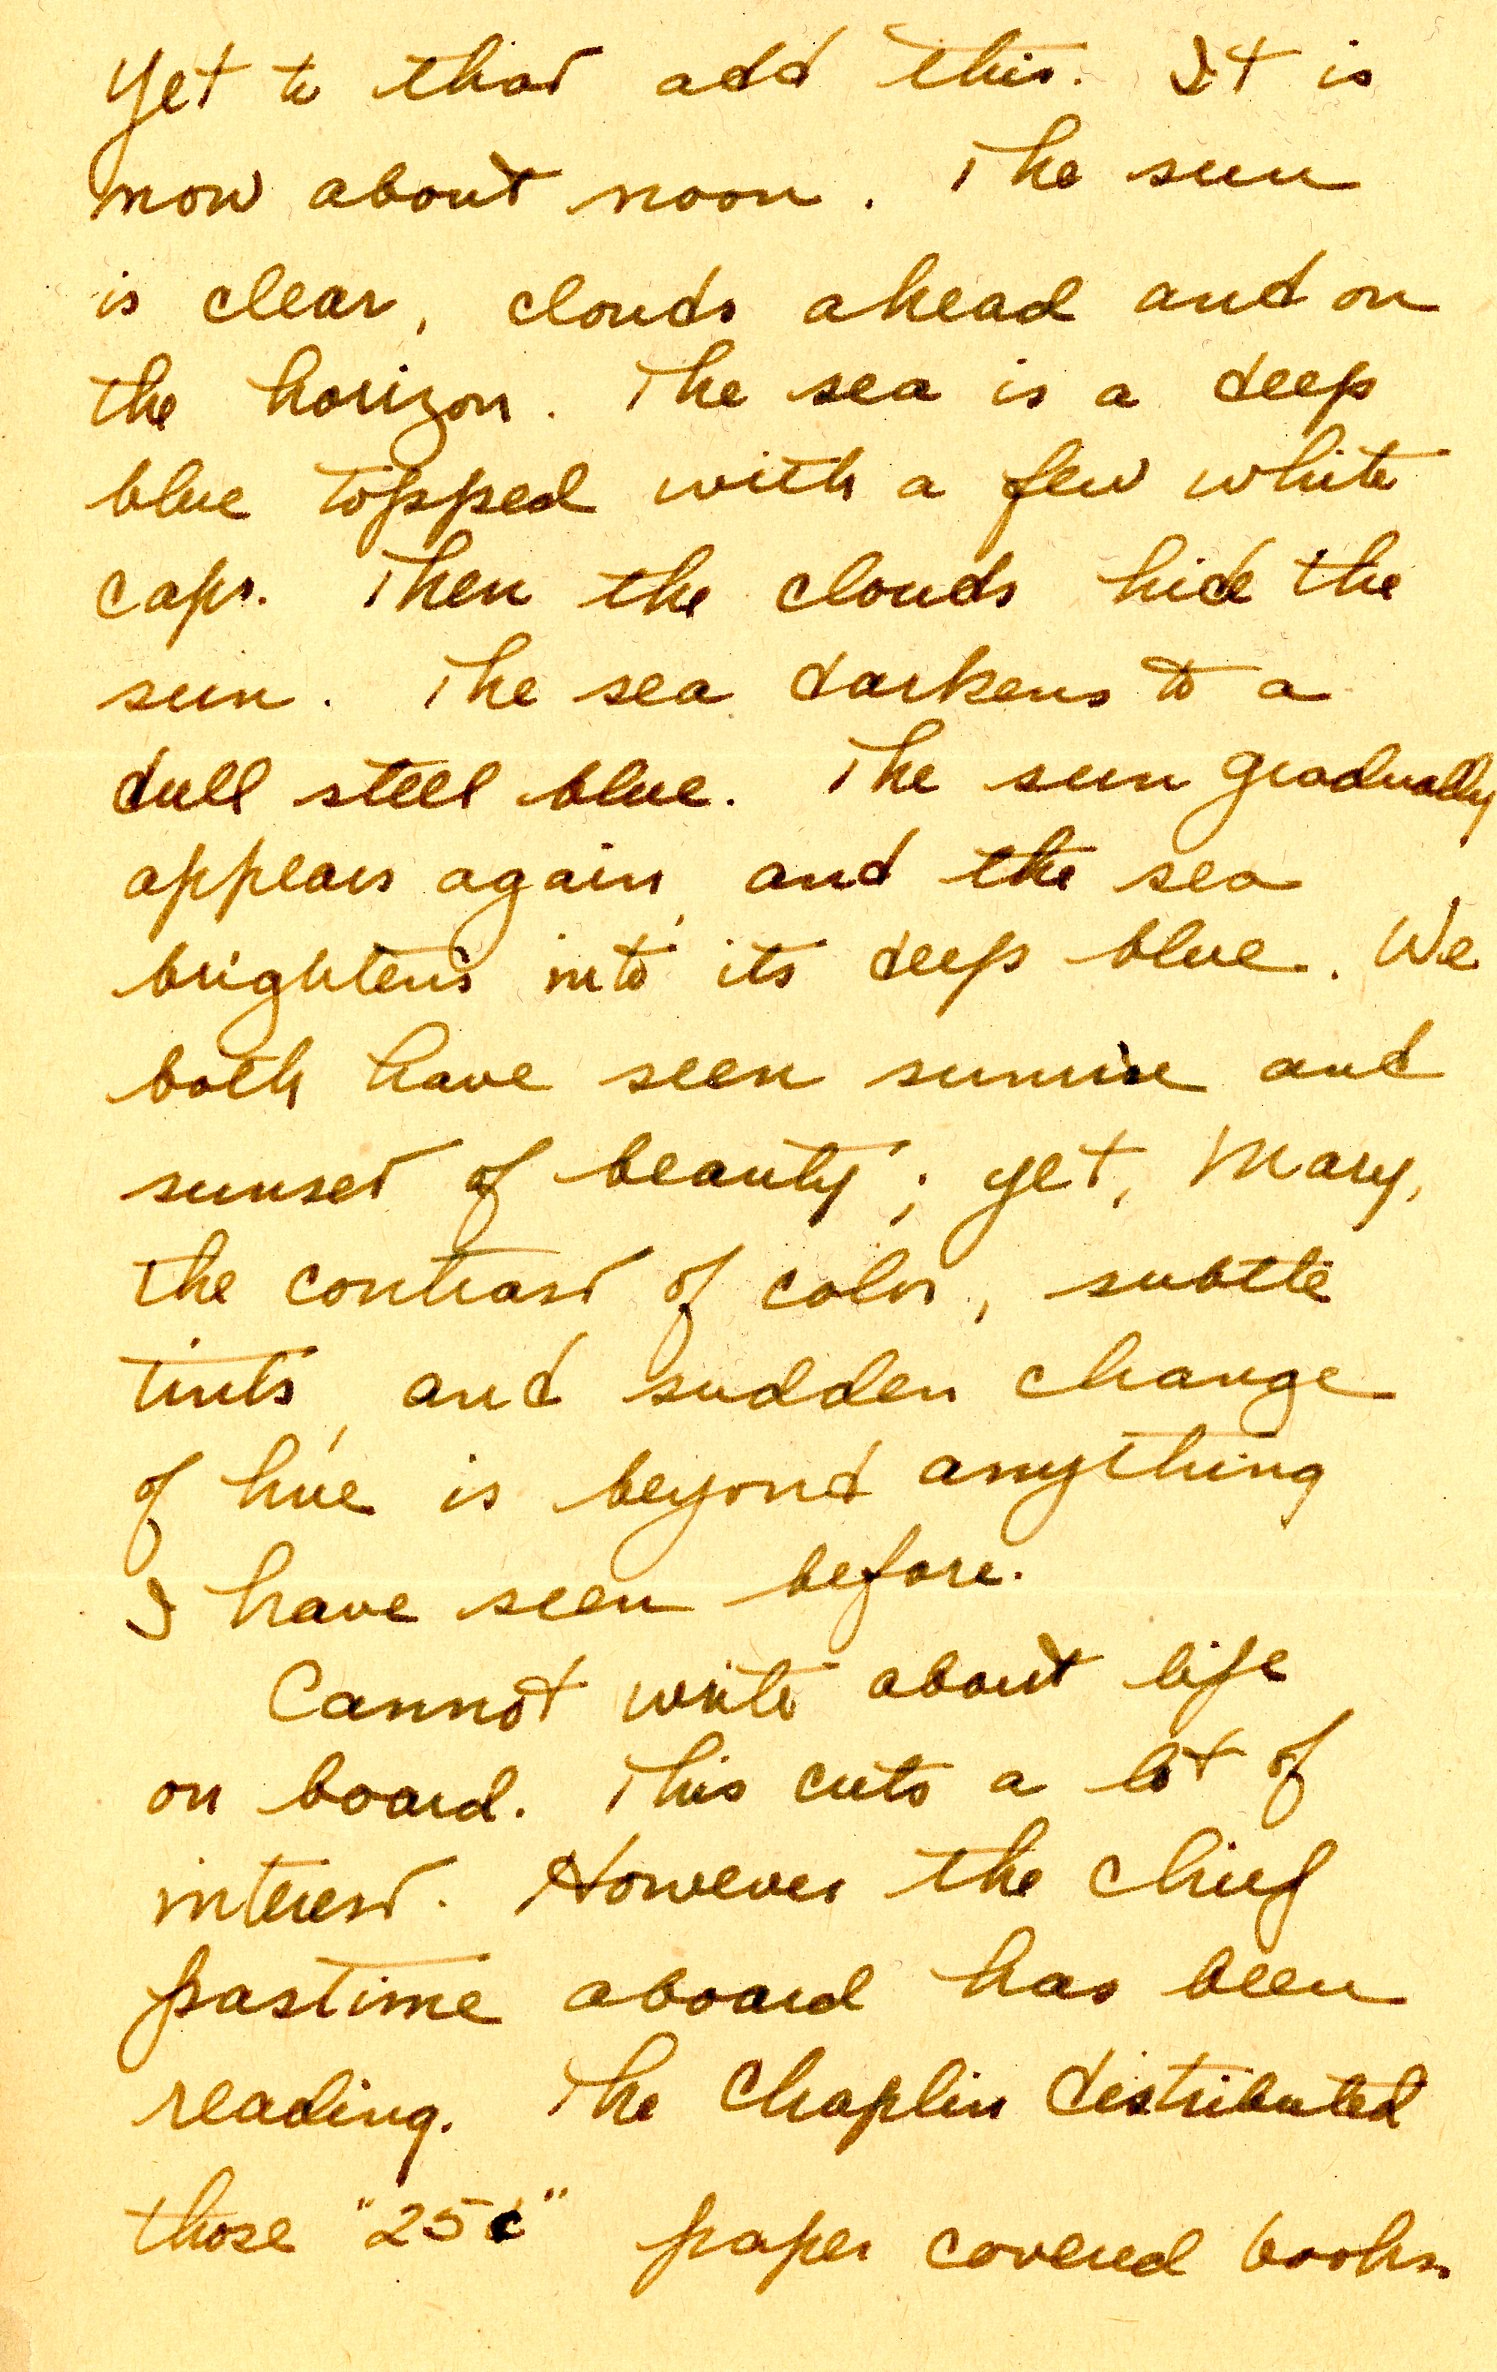 Yet to that add this. It is
now about noon. The sun
is clear, clouds ahead and on
the horizon. The sea is a deep
blue topped with a few white
caps. Then the clouds hide the
sun. The sea darkens to a
dull steel blue. The sun gradually
appears again, and the sea
brightens into its deep blue. We
both have seen sunrise and
sunset of beauty; yet, Mary,
the contrast of color, subtle
tints, and sudden change
of hue is beyond anything
I have seen before.
Cannot write about life
on board. This cuts a lot of
interest. However the chief
pastime aboard has been
reading. The Chaplin distributed
those "25¢" paper covered books